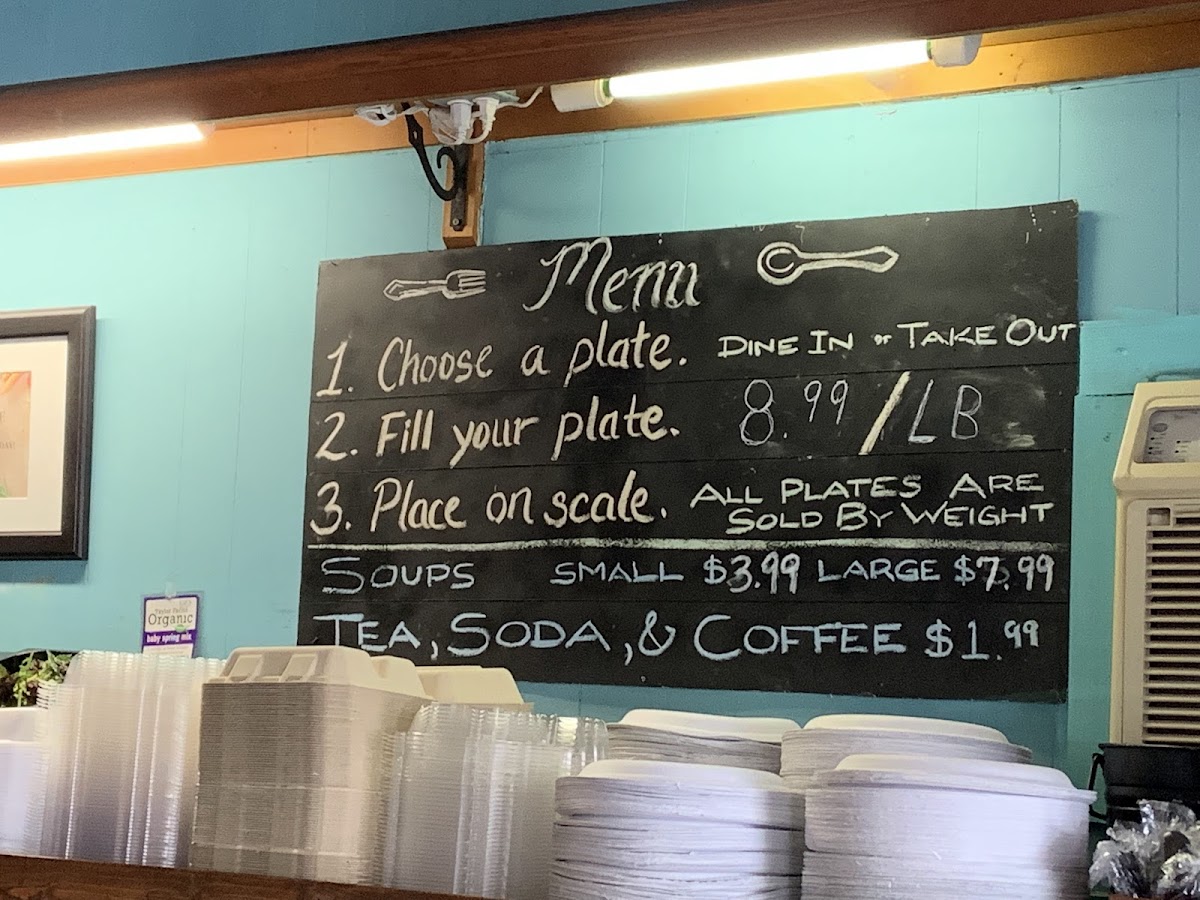 Menu
1. Choose a plate. DINE IN or TAKE OUT
2. Fill your plate. 8.99/LB
3. Place on scale. ALL PLATES ARE
SOLD BY WEIGHT
SOUPS SMALL $3.99 LARGE $7.99
TEA, SODA, & COFFEE $1.99
Taylor Farms
Organic
baby spring mix